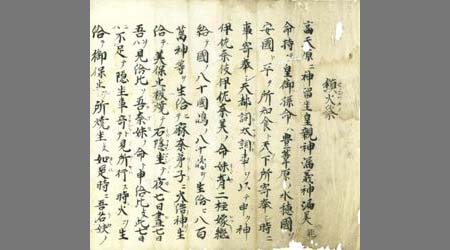 鎮火祭
高天原ニ神留坐皇親神漏義神漏美能
命持テ皇御孫命ハ豊葦原ノ水穂國ヲ
安國ト平ク所知食ト天下所寄奉シ時ニ
事寄奉シ天都詞太詞事ヲ以テ申ク神
伊佐奈伎伊佐奈美ノ命妹背二柱嫁継
給テ國ノ八十國嶋ノ八十嶋ヲ生給ヒ八百
萬神等ヲ生給ヒ麻奈弟子ニ火結神生
給テ美保止被焼テ石隠坐テ夜七日晝七日
吾ヲ奈見給比ソ吾奈妹ノ命ト申給比支此七日
ニハ不足テ隠坐事奇ト見所行ス時火ヲ生
給テ御保止ヲ所焼坐支如是時ニ吾名妹ノ